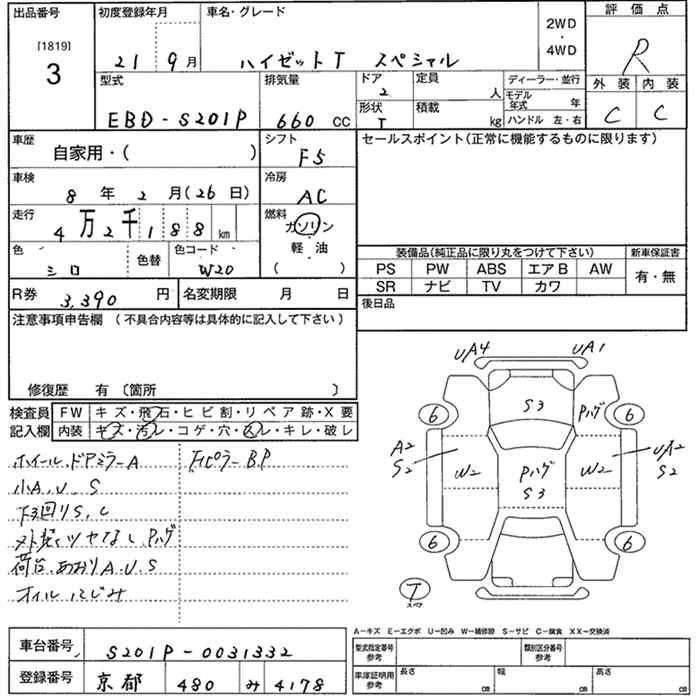 出品番号
[1819]
3
初度登録年月
21 9月
車名・グレード
ハイゼットT スペシャル
2WD
・
4WD
評価点
R
外装 内装
C C
型式
EBD-S201P
排気量
660 cc
ドア
2
定員
人
形状
T
積載
kg
ディーラー・並行
モデル年式 年
ハンドル 左・右
車歴
自家用・( )
シフト
F5
セールスポイント(正常に機能するものに限ります)
車検
8年2月(26日)
冷房
AC
走行
4万2千188km
燃料
ガソリン
・
軽油
( )
色
シロ
色替
色コード
W20
装備品(純品に限り丸をつけて下さい)
新車保証書
PS PW ABS エアB AW
SR ナビ TV カワ
有・無
R券
3,390円
名変期限 月 日
後日品
注意事項申告欄 (不具合内容等は具体的に記入して下さい)
修復歴 有 〔箇所 〕
検査員記入欄
FW キズ・飛石・ヒビ割・リペア跡・X要
内装 キズ・汚レ・コゲ・穴・スレ・キレ・破レ
ホイール、ドアミラーA
小A、U、S
下回りS、C
ツヤなし Pハゲ
荷台、あおりA、U、S
オイルにじみ
ピラーB.P
UA4 UA1
S3
Pハゲ
6 6
A2
S2
W2
Pハゲ
S3
W2
UA2
S2
6 6
T
スペア
A-キズ E-エクボ U-凹み W-補修跡 S-サビ C-腐食 XX-交換済
車台番号
S201P-0031332
登録番号
京都 480 み 4178
型式指定番号
参考
類別区分番号
参考
車庫証明用
参考
長さ cm
幅 cm
高さ cm